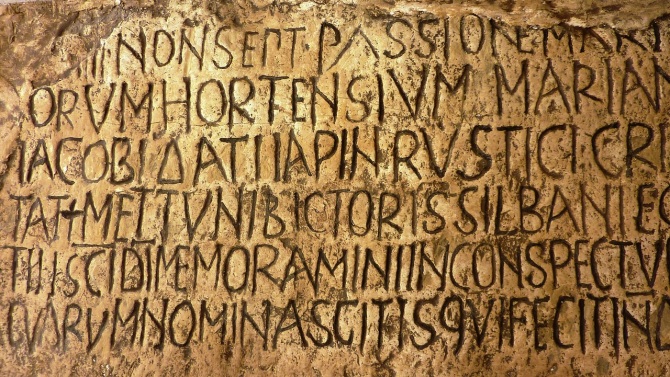 IIII NON SEPT · PASSIONE MART
ORVM HORTENSIVM MARIAN
IACOBI DATI IAPIN RVSTICI CRI
TAT+ METTVNI BICTORIS SILBANI E
TII SCI DI MEMORAMINI IN CONSPECTV
NOMINA SCITIS QVI FECIT IN